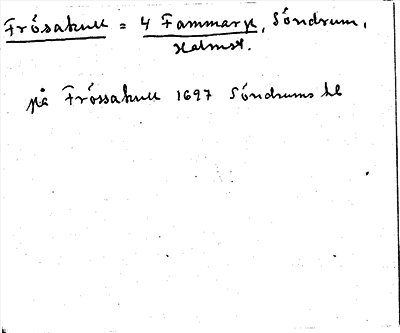 Frösakull = 4 Fammarp, Söndrum,
Halmst.
på Frössakull 1697 Söndrums kb